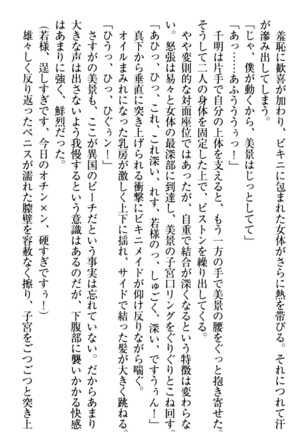 羞恥に歓喜が加わり、ビキニに包まれた女体がさらに熱を帯びる。それにつれて汗
が滲み出してしまう。
「じゃ、僕が動くから、美景はじっとしてて」
「あっ……あふううぅっ！」
千明は片手で自分の上体を支えると、もう一方の手で美景の腰をぐっと抱き寄せた。
そうして二人の身体を固定した上で、ピストンを繰り出してくる。
やや変則的な対面座位ではあったが、自重で結合が深くなるという特徴は変わらな
い。怒張は易々と女体の最深部に到達し、美景の子宮口リングをぐりぐりとこね回す。
「あひっ、ひっ、これ、これ深い、れす、若様のっ、しゅごく、深い、ですうぅん！」
真下から垂直に突き上げられる衝撃にビキニメイドが仰け反りながら喘ぐ。
オイルまみれになった乳房が激しく上下に揺れ、サイドで結った髪が大きく跳ねる。
「ひうっ、ひっ、ひぐぅン！」
さすがの美景も、ここが異国のビーチだという事実は忘れていない。だからあまり
大きな声は出さないよう我慢するという意識はあるのだが、下腹部に襲いかかる快感
はあまりに強く、鮮烈だった。
（若様、逞しすぎです、今日のオチンメン、硬すぎですぅー！）
雄々しく反り返ったペニスが濡れた膣壁を容赦なく擦り、子宮をごつごつと突き上